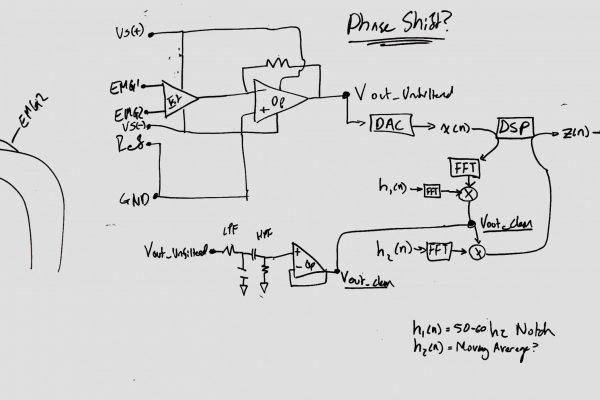 Phase Shift?
Vs(+)
EMG2
EMG1
EMG2
Vs(-)
Ref
GND
Inst
Op
Vout_Unfiltered
DAC
x(n)
DSP
z(n)
FFT
h₁(n)
FFT
x
Vout_clean
h₂(n)
FFT
x
LPF
HPF
Vout_Unfiltered
Op
Vout_clean
h₁(n) = 50-60 hz Notch
h₂(n) = Moving Average?